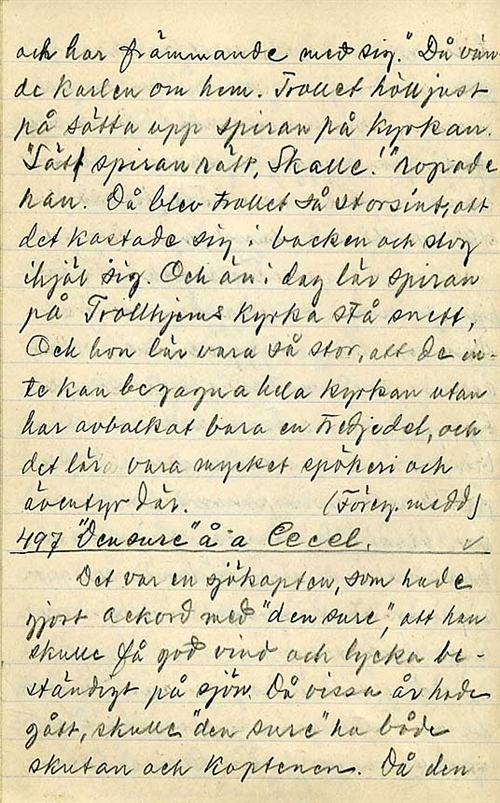 och har främmande med sig." Då vän
de karlen om hem. Trollet höll just
på sätta upp spiran på kyrkan.
"Sätt spiran rätt, Skalle!" ropade
han. Då blev trollet så storsint, att
det kastade sig i backen och slog
ihjäl sig. Och än i dag lär spiran
på Trollhjems kyrka stå snett,
Och hon lär vara så stor, att de in-
te kan begagna hela kyrkan utan
har avbalkat bara en tredjedel, och
det lär vara mycket spökeri och
äventyr där. (Föreg. medd)
497 "Den sure" å a Cecel.
Det var en sjökapten, som hade
gjort ackord med "den sure", att han
skulle få god vind och lycka be-
ständigt på sjön. Då vissa år hade
gått, skulle "den sure" ha både
skutan och kaptenen. Då den